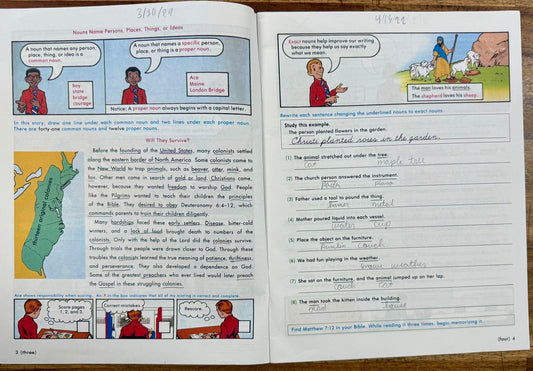 3/30/94
Nouns Name Persons, Places, Things, or Ideas
A noun that names any person,
place, thing, or idea is a
common noun.
A noun that names a specific person,
place, or thing is a proper noun.
boy
state
bridge
courage
Ace
Maine
London Bridge
Notice: A proper noun always begins with a capital letter.
In this story, draw one line under each common noun and two lines under each proper noun.
There are forty-one common nouns and twelve proper nouns.
Will They Survive?
Before the founding of the United States, many colonists settled
along the eastern border of North America. Some colonists came to
the New World to trap animals, such as beaver, otter, mink, and
fox. Other men came in search of gold or land. Christians came,
however, because they wanted freedom to worship God. People
like the Pilgrims wanted to teach their children the principles
of the Bible. They desired to obey Deuteronomy 6:4–12, which
commands parents to train their children diligently.
Many hardships faced these early settlers. Disease, bitter-cold
winters, and a lack of food brought death to numbers of the
colonists. Only with the help of the Lord did the colonies survive.
Through trials the people were drawn closer to God. Through these
troubles the colonists learned the true meaning of patience, thriftiness,
and perseverance. They also developed a dependence on God.
Some of the greatest preachers who ever lived would later preach
the Gospel in these struggling colonies.
thirteen original colonies
Ace shows responsibility when scoring. An X in the box indicates that all of my scoring is correct and complete.
Score pages
1, 2, and 3.
Correct mistakes
Rescore.
3 (three)
Exact nouns help improve our writing
because they help us say exactly
what we mean.
The man loves his animals.
The shepherd loves his sheep.
Rewrite each sentence changing the underlined nouns to exact nouns.
Study this example.
The person planted flowers in the garden.
Christi planted roses in the garden.
(1) The animal stretched out under the tree.
Cat maple tree
(2) The church person answered the instrument.
(3) Father used a tool to pound the thing.
(4) Mother poured liquid into each vessel.
water cup
(5) Place the object on the furniture.
couch
(6) We had fun playing in the weather.
weather
(7) She sat on the furniture, and the animal jumped up on her lap.
couch cat
(8) The man took the kitten inside the building.
Find Matthew 7:12 in your Bible. While reading it three times, begin memorizing it.
(four) 4